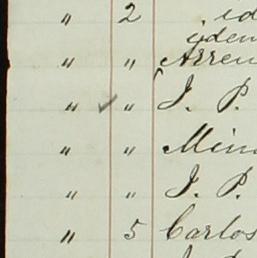 " 2 , id
idem
" " Arren
" " J. P.
" " Min
" " J. P.
" 5 Carlos